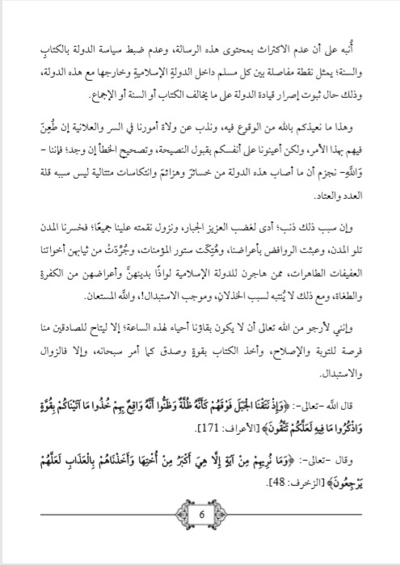 أُنبه على أن عدم الاكتراث بمحتوى هذه الرسالة، وعدم ضبط سياسة الدولة بالكتابِ
والسنة؛ يمثل نقطة مفاصلة بين كل مسلم داخل الدولةِ الإسلاميةِ وخارجها مع هذه الدولة،
وذلك حال ثبوت إصرار قيادة الدولة على ما يخالف الكتاب أو السنة أو الإجماع.
وهذا ما نعيذكم بالله من الوقوع فيه، ونذب عن ولاة أمورنا في السر والعلانية إن طُعِنَ
فيهم بهذا الأمر، ولكن أعينونا على أنفسكم بقبول النصيحة، وتصحيح الخطأ إن وجد؛ فإننا –
وَاللَّهِ– نجزم أن ما أصاب هذه الدولة من خسائرَ وهزائمَ وانتكاسات متتالية ليس سببه قلة
العدد والعتاد.
وإن سبب ذلك ذنب؛ أدى لغضب العزيز الجبار، ونزول نقمته علينا جميعًا؛ فخسرنا المدن
تلو المدن، وعبثت الروافض بأعراضنا، وهُتِكَت ستور المؤمنات، وجُرِّدَتْ من ثيابهن أخواتنا
العفيفات الطاهرات، ممن هاجرن للدولة الإسلامية لواذًا بدينهنَّ وأعراضهن من الكفرةِ
والطغاة، ومع ذلك لا يُنتبه لسبب الخذلانِ، وموجب الاستبدال!، واللَّه المستعان.
وإنني لأرجو من الله تعالى أن لا يكون بقاؤنا أحياء لهذه الساعة؛ إلا ليتاح للصادقين منا
فرصة للتوبة والإصلاح، وأخذ الكتاب بقوةٍ وصدق كما أمر سبحانه، وإلا فالزوال
والاستبدال.
قال اللَّه –تعالى–: ﴿وَإِذْ نَتَقْنَا الْجَبَلَ فَوْقَهُمْ كَأَنَّهُ ظُلَّةٌ وَظَنُّوا أَنَّهُ وَاقِعٌ بِهِمْ خُذُوا مَا آتَيْنَاكُمْ بِقُوَّةٍ
وَاذْكُرُوا مَا فِيهِ لَعَلَّكُمْ تَتَّقُونَ﴾ [الأعراف: 171].
وقال –تعالى–: ﴿وَمَا نُرِيهِمْ مِنْ آيَةٍ إِلَّا هِيَ أَكْبَرُ مِنْ أُخْتِهَا وَأَخَذْنَاهُمْ بِالْعَذَابِ لَعَلَّهُمْ
يَرْجِعُونَ﴾ [الزخرف: 48].
6